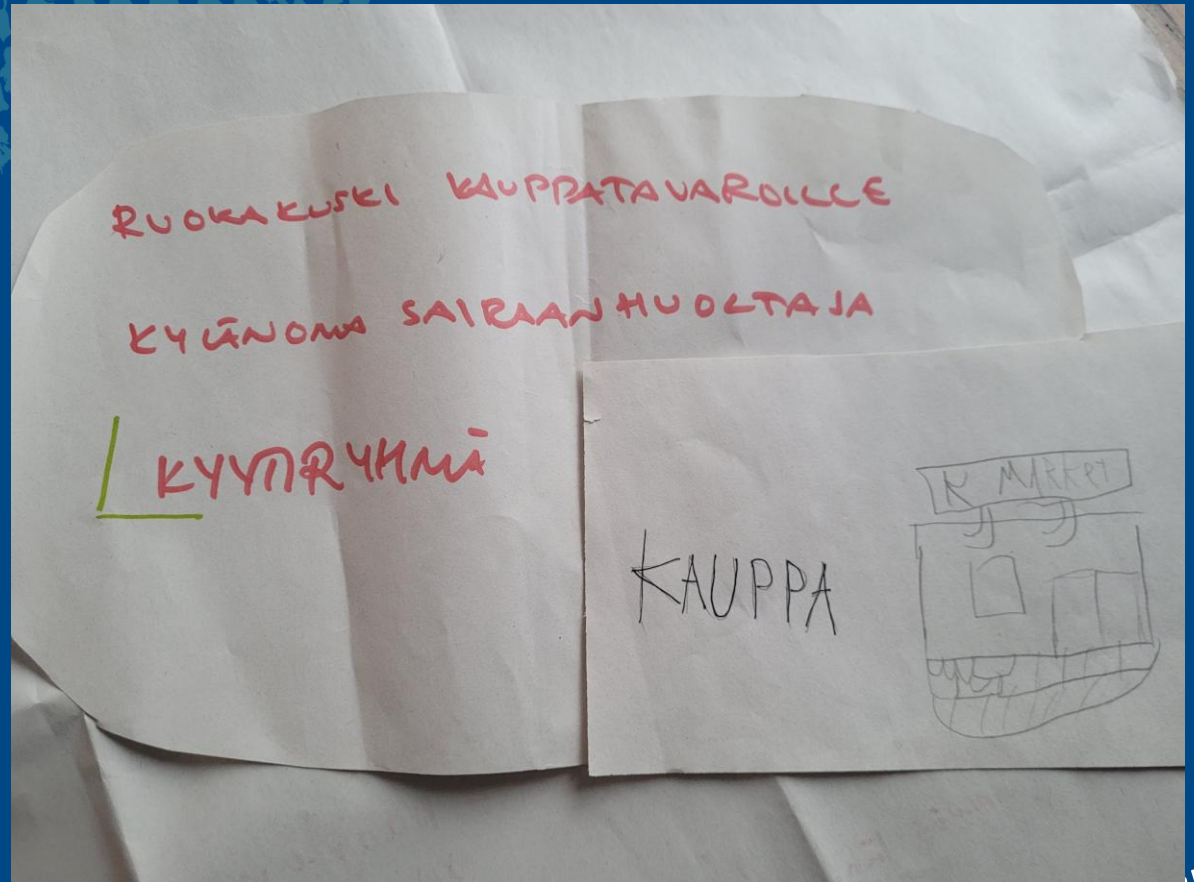 RUOKAKUSKI KAUPPATAVAROILLE
KYLÄNOMA SAIRAANHUOLTAJA
KYYTIRYHMÄ
KAUPPA
K MARKET